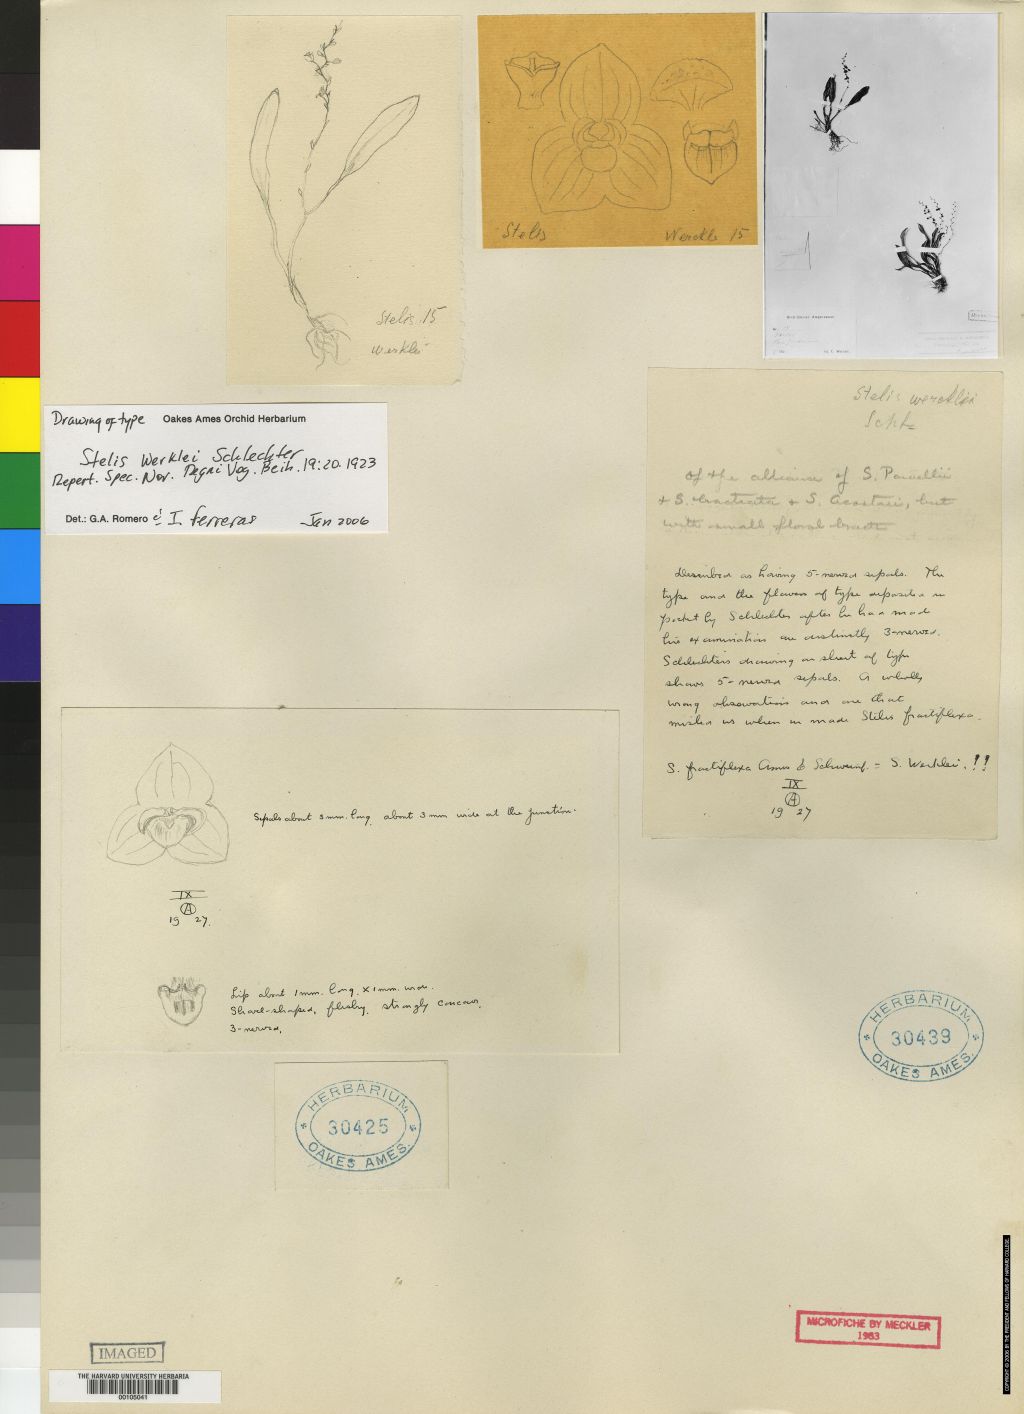 Stelis 15
Werklei
Stelis Werckle 15
Stelis werckléi
Schltr
Drawing of type Oakes Ames Orchid Herbarium
Stelis Werklei Schlechter
Repert. Spec. Nov. Regni Veg. Beih. 19:20. 1923
Det.: G.A. Romero & I. Ferreras Jan 2006
of the alliance of S. Powellii
+ S. bracteata + S. Acostaei, but
with small floral bracts
described as having 5-nerved sepals. The
type and the flowers of type deposited in
pocket by Schlechter after he had made
his examination are distinctly 3-nerved.
Schlechter's drawing on sheet of type
shows 5-nerved sepals. A wholly
wrong observation and one that
misled us when we made Stelis fractiflexa.
S. fractiflexa Ames & Schweinf. = S. Werklei.!!
IX
A
19 27
Sepals about 3mm. long about 3mm wide at the junction.
IX
A
19 27.
Lip about 1mm. long. x 1mm. wide.
Shovel-shaped, fleshy, strongly concave,
3-nerved.
HERBARIUM
30439
OAKES AMES.
HERBARIUM
30425
OAKES AMES.
MICROFICHE BY MECKLER
1983
IMAGED
THE HARVARD UNIVERSITY HERBARIA
00105041
COPYRIGHT © 2006 BY THE PRESIDENT AND FELLOWS OF HARVARD COLLEGE.